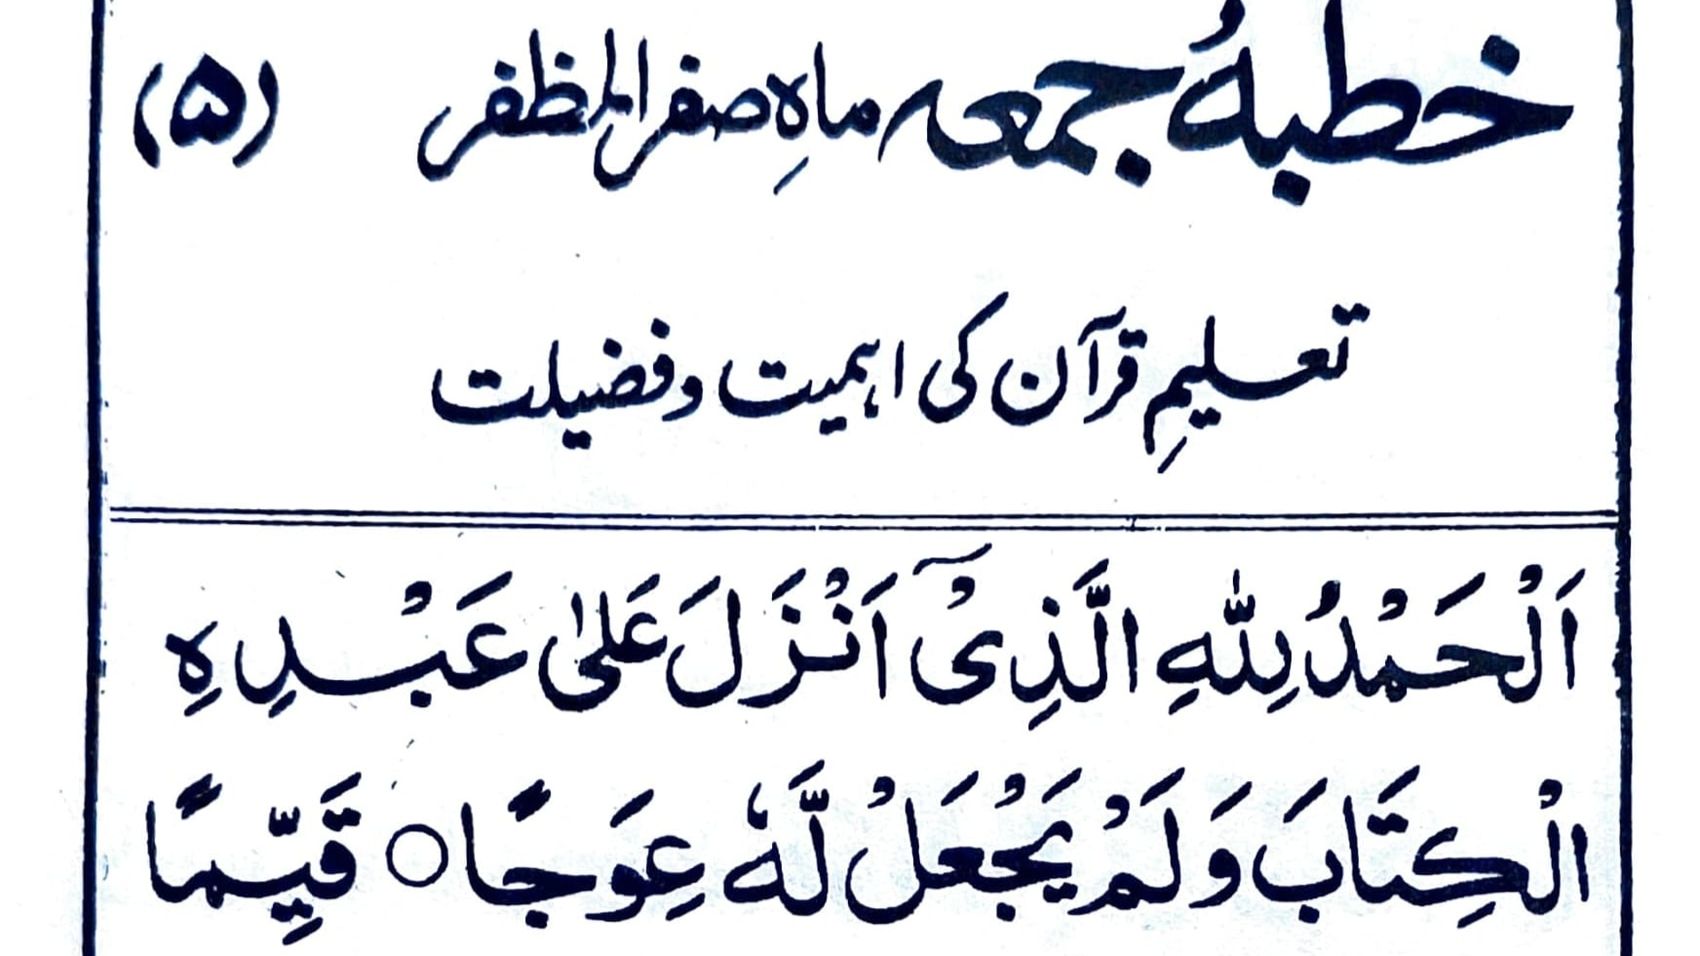 خطبۂ جمعہ ماہِ صفر المظفر (۵)
تعلیمِ قرآن کی اہمیت و فضیلت
اَلْحَمْدُ لِلّٰہِ الَّذِیْۤ اَنْزَلَ عَلیٰ عَبْدِہِ
الْکِتَابَ وَلَمْ یَجْعَلْ لَّہٗ عِوَجًا○ قَیِّمًا